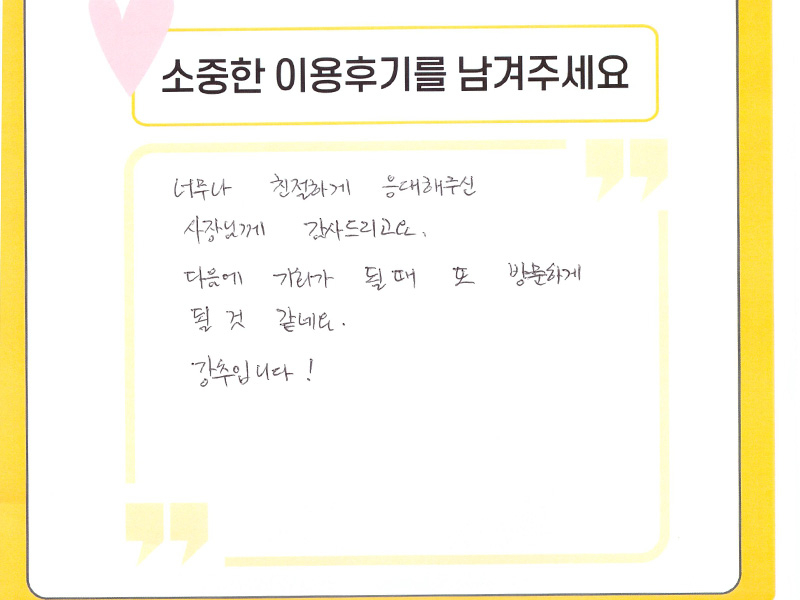 소중한 이용후기를 남겨주세요
너무나 친절하게 응대해주신
사장님께 감사드리고요.
다음에 기회가 될 때 또 방문하게
될 것 같네요.
강추입니다!